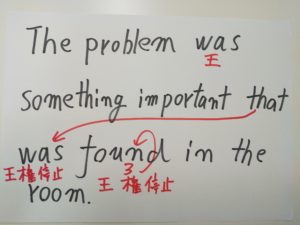 The problem was
王
something important that
was found in the
王権停止 王 3 権停止
room.